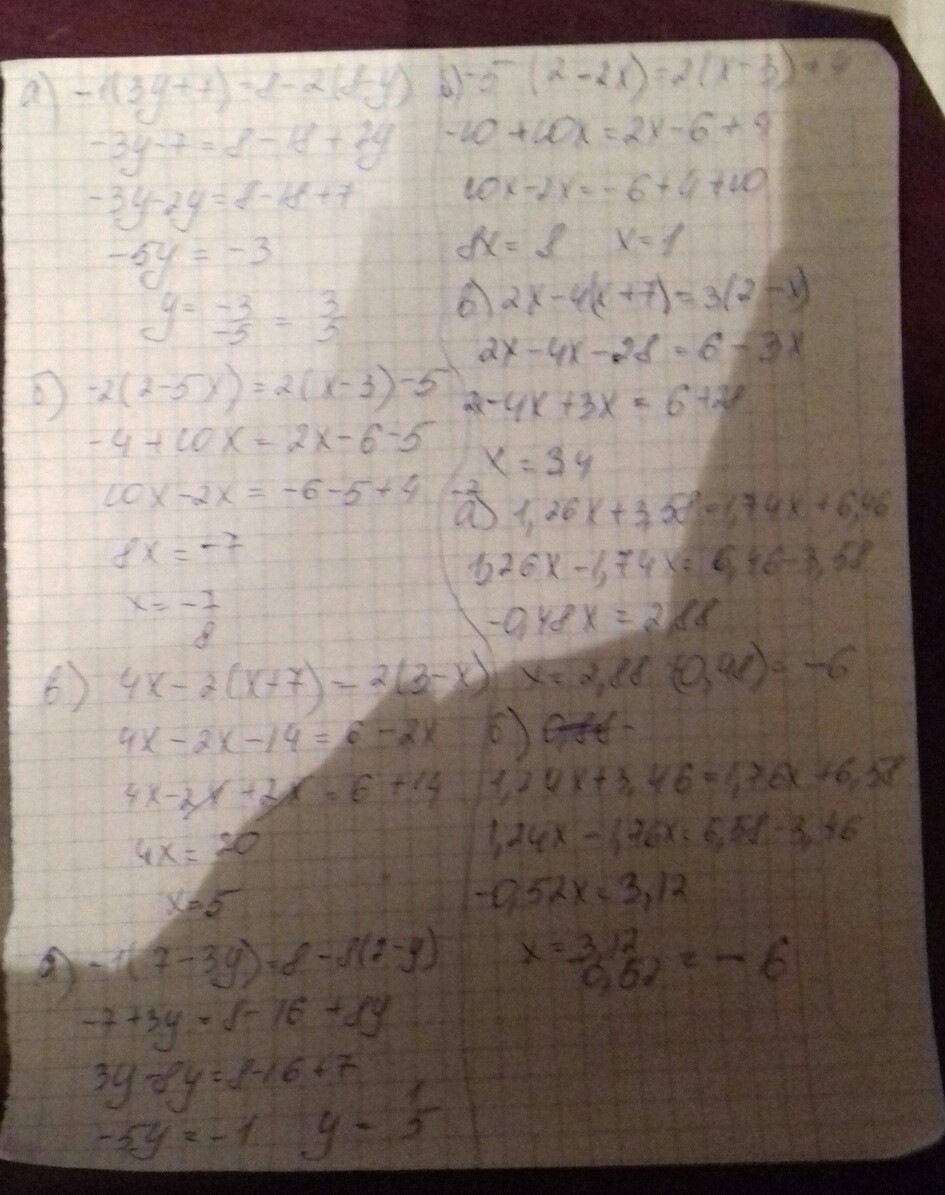 а) -1(3y+7)=8-2(8-y)
-3y-7=8-18+2y
-3y-2y=8-18+7
-5y=-3
y= -3/-5 = 3/5
б) -2(2-5x)=2(x-3)-5
-4+10x=2x-6-5
10x-2x=-6-5+4
8x=-7
x=-7/8
в) 4x-2(x+7)=2(3-x)
4x-2x-14=6-2x
4x-2x+2x=6+14
4x=20
x=5
-1(7-3y)=8-8(2-y)
-7+3y=8-16+8y
3y-8y=8-16+7
-5y=-1 y-1/5
б)-5 (2-2x)=2(x-3)+4
-10+10x=2x-6+4
10x-2x=-6+4+10
8x=8 x=1
в) 2x-4(x+7)=3(2-x)
2x-4x-28=6-3x
2x-4x+3x=6+28
x=34
а) 1,26x+3,58=1,74x+6,46
1,26x-1,74x=6,46-3,58
-0,48x=2,88
x=2,88 (0,48)=-6
б)
1,24x+3,46=1,76x+6,58
1,24x-1,76x=6,58-3,46
-0,52x=3,12
x=3,12/0,52=-6